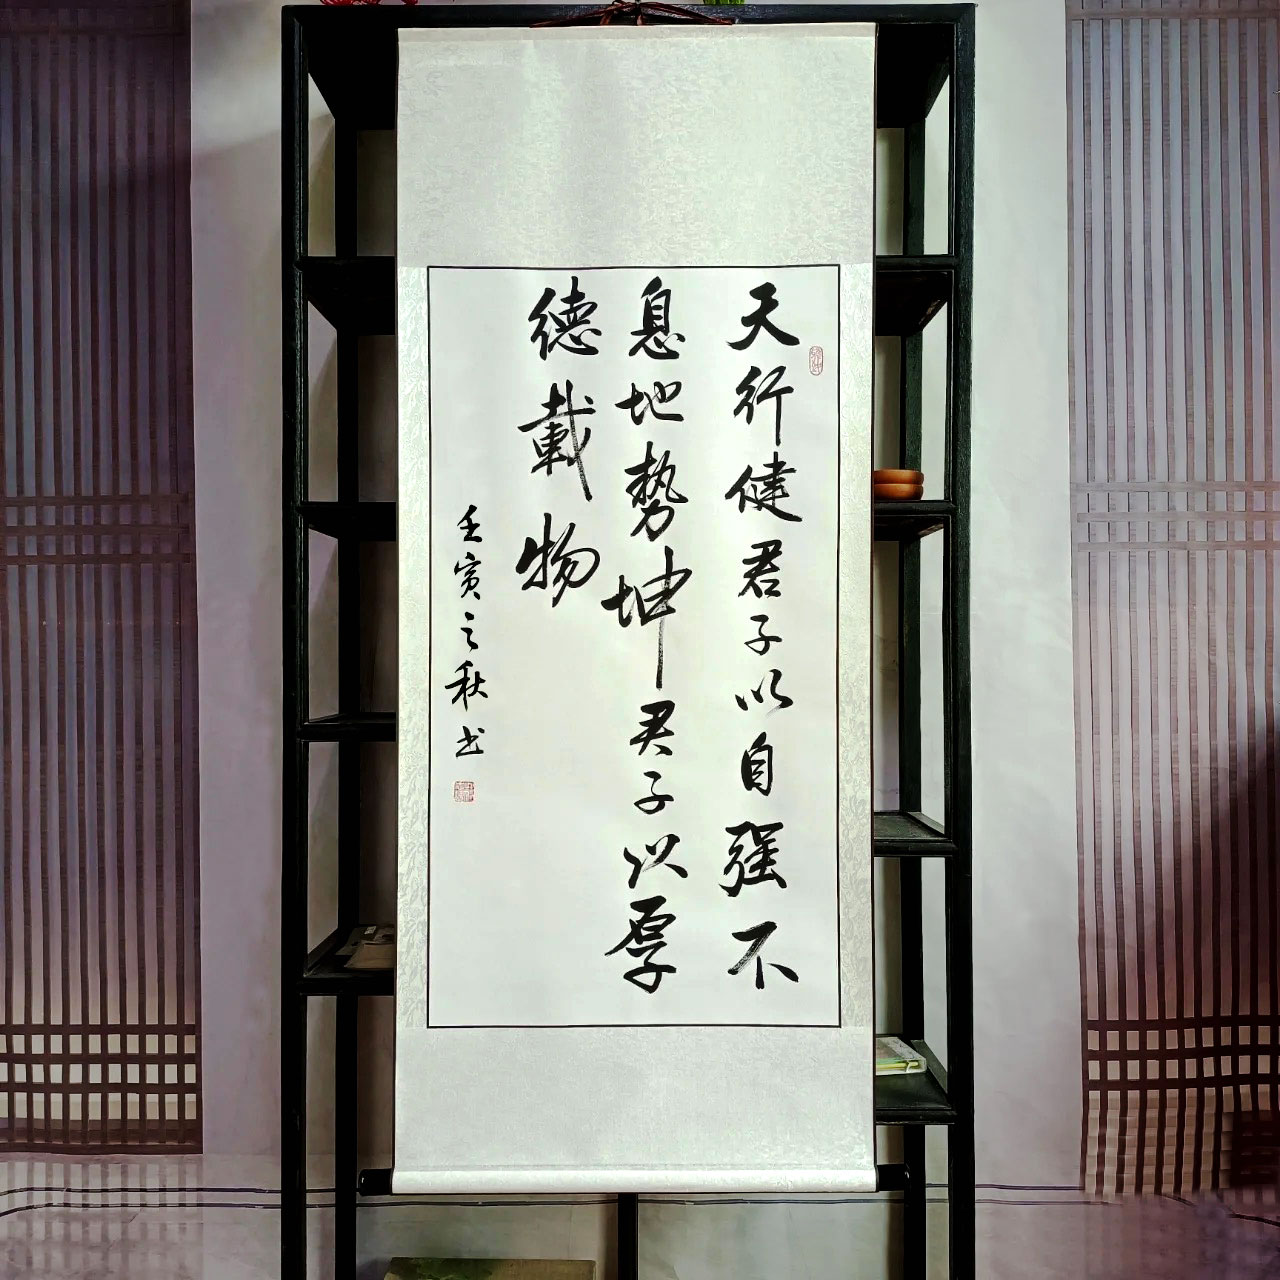 天行健君子以自强不
息地势坤君子以厚
德載物
壬寅之秋书